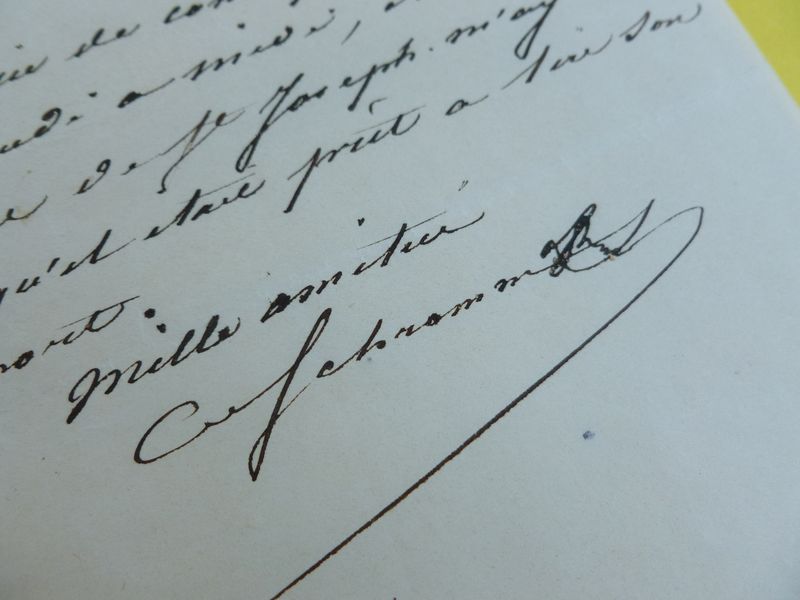 de con
a midi,
de St Joseph. m'ay
qu'il etait prêt a lire son
Mille amitié
Ce Schramm